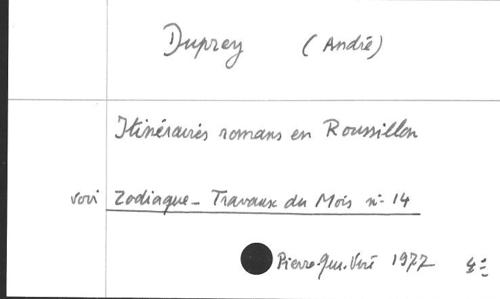 Duprey (André)
Itinéraires romans en Roussillon
voir Zodiaque - Travaux du Mois n° 14
Pierre-qui-Vire 1977